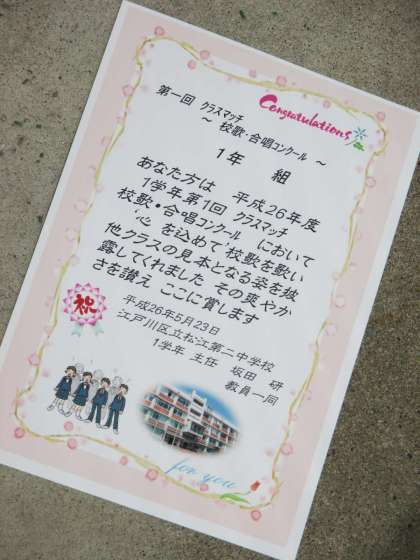 Congratulations
第一回 クラスマッチ
～ 校歌・合唱コンクール ～
1年 組
あなた方は 平成26年度
1学年第1回 クラスマッチ
校歌・合唱コンクール において
'心' を込めて'校歌を歌い
他クラスの見本となる姿を披
露してくれました その爽やか
さを讃え ここに賞します
平成26年5月23日
江戸川区立松江第二中学校
1学年 主任 坂田 研
教員一同
祝
for you